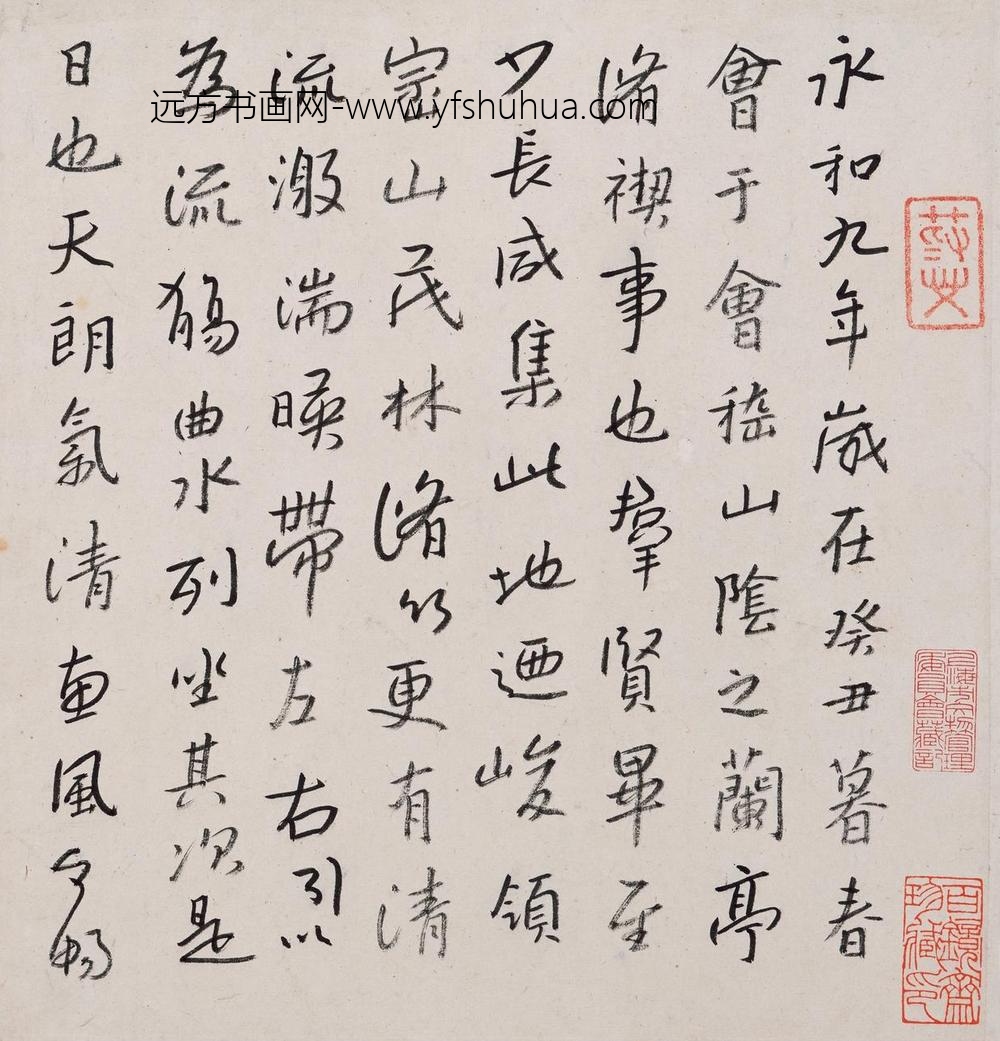 永和九年歲在癸丑暮春
會于會稽山陰之蘭亭
脩禊事也羣賢畢至
少長咸集此地迺峻領
崇山茂林脩竹更有清
流激湍暎帶左右引以
為流觴曲水列坐其次是
日也天朗氣清惠風和暢
远方书画网-www.yfshuhua.com